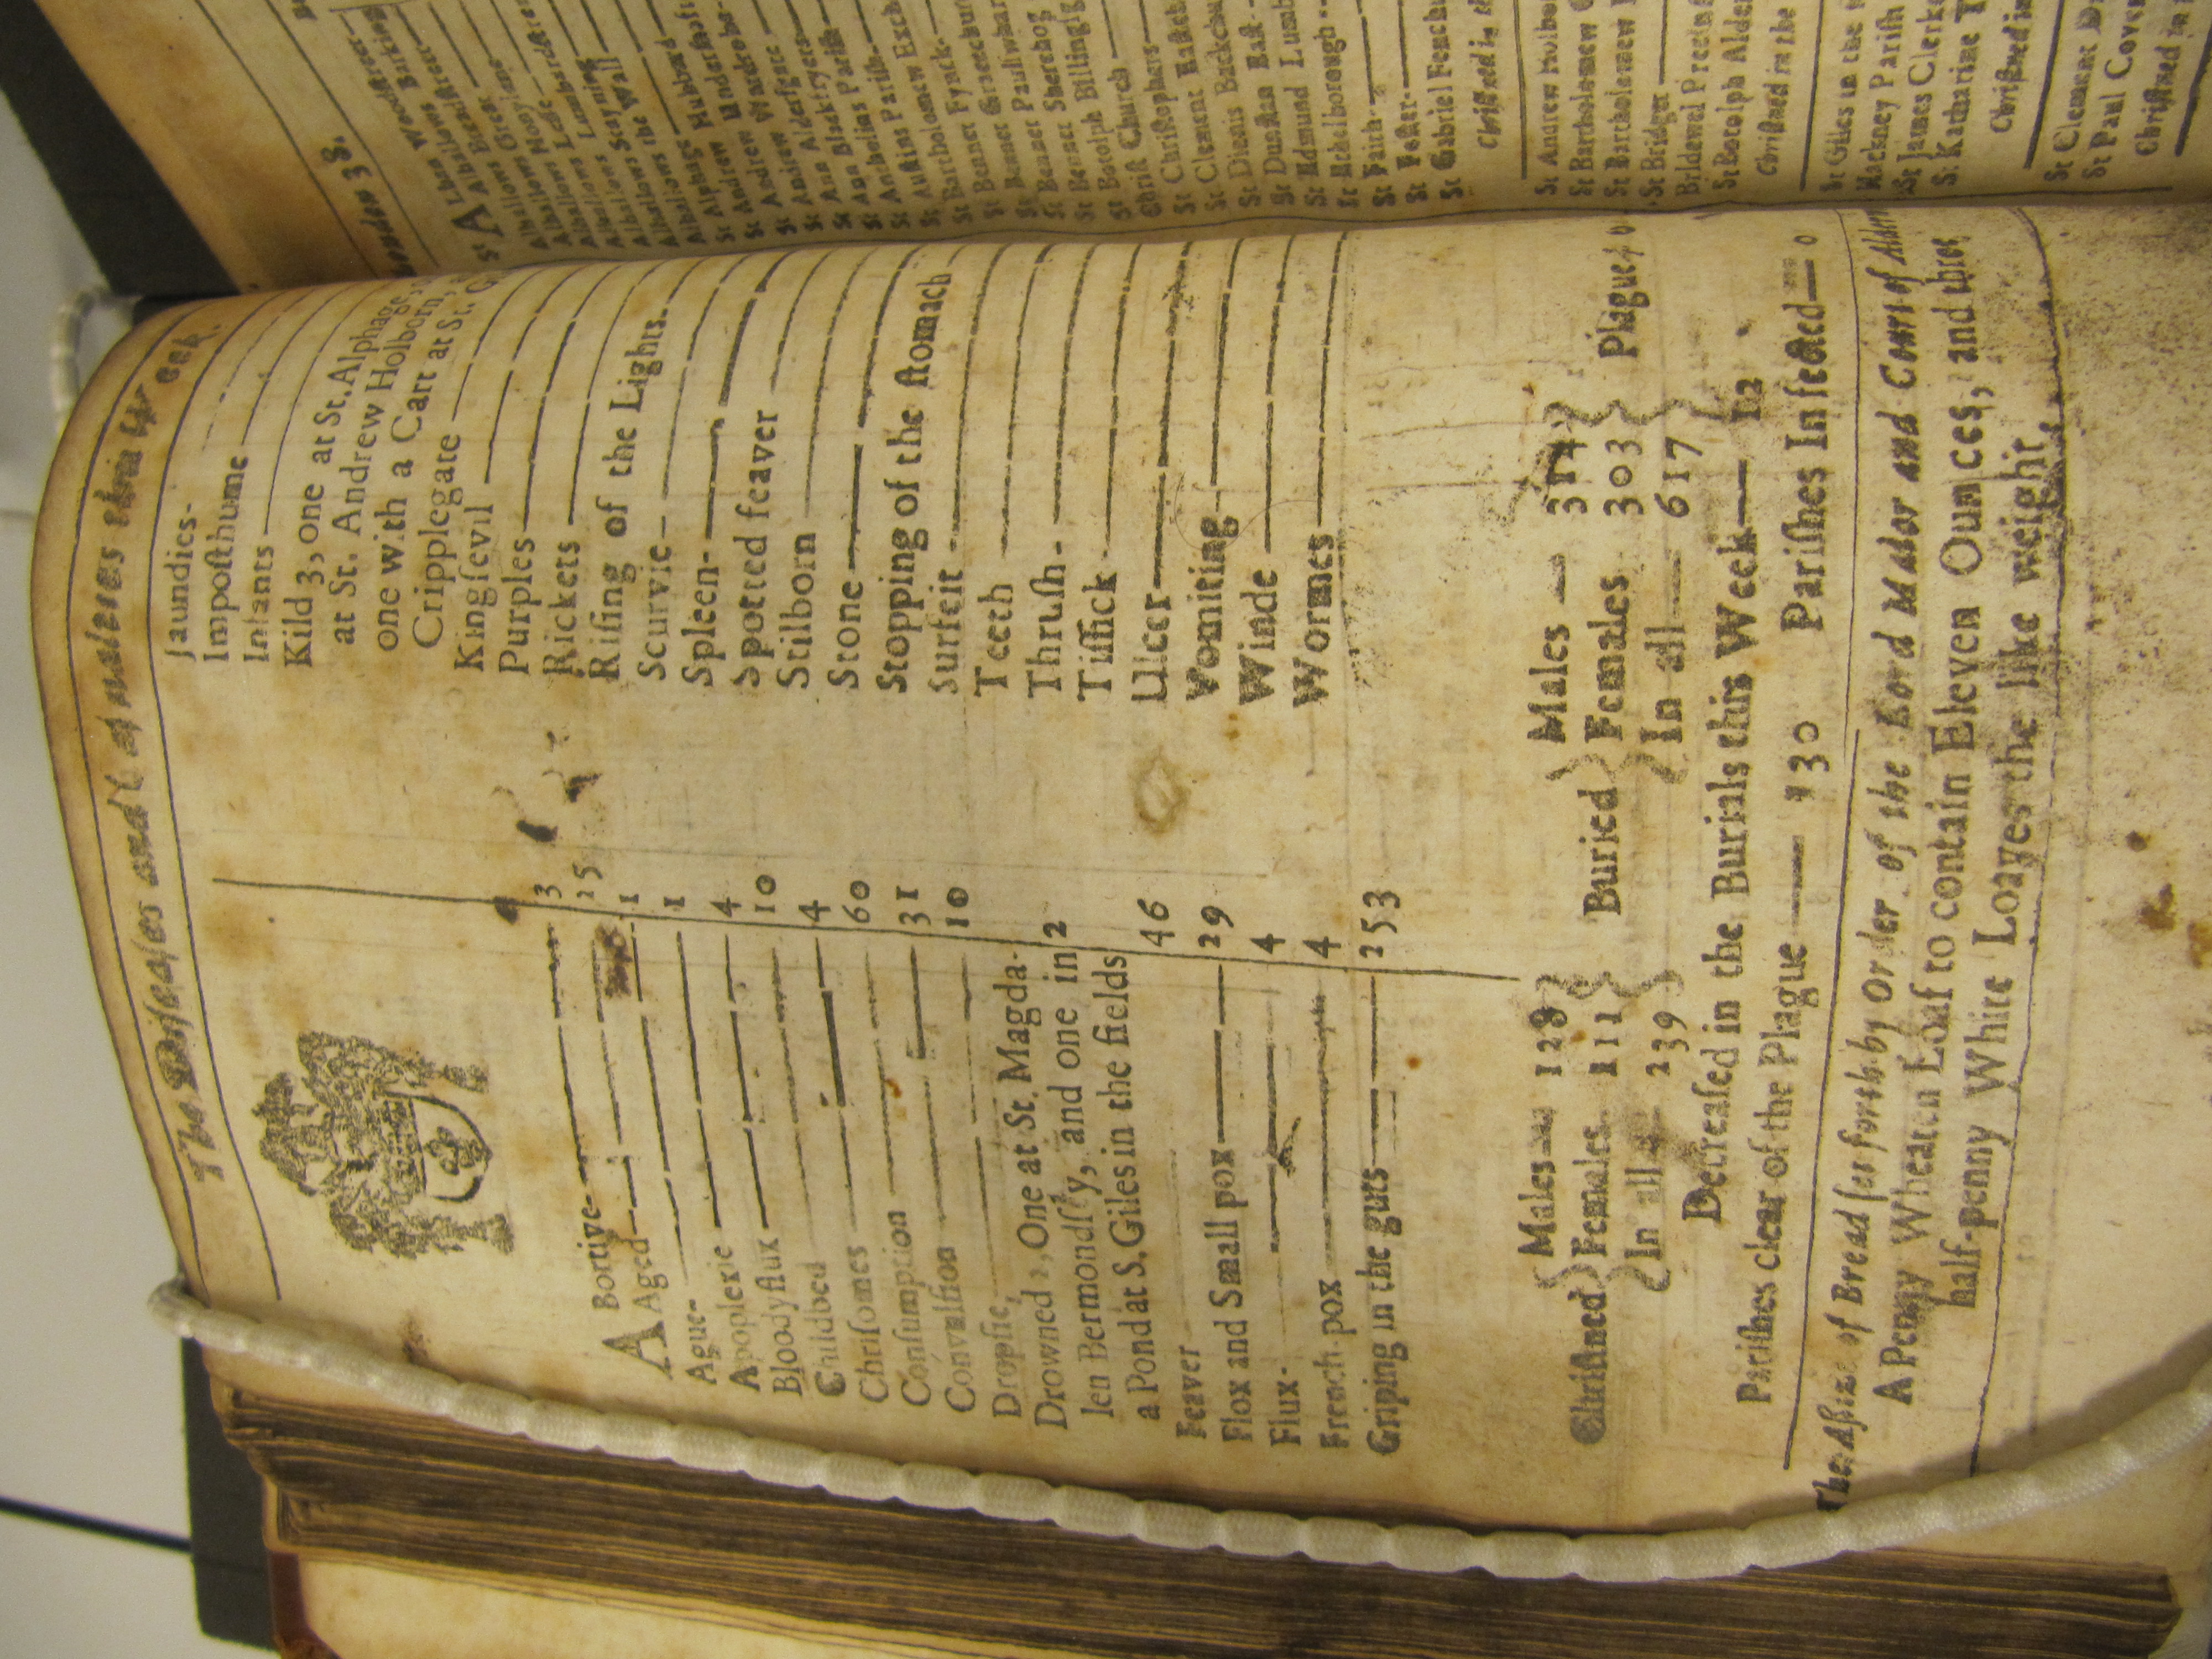 The Diseases and Casualties this Week.
ABortive 3
Aged 25
Ague 1
Apoplexie 1
Bloody flux 4
Childbed 10
Chrisomes 4
Consumption 60
Convulsion 31
Dropsie, 10
Drowned 2, One at St. Magda-
len Bermondsſy, and one in 2
a Pond at S. Giles in the fields
Feaver 46
Flox and Small pox 29
Flux 4
French-pox 4
Griping in the guts 253
Jaundies
Impoſthume
Infants
Kild 3, one at St. Alphage,
at St. Andrew Holborn,
one with a Cart at St. G
Cripplegate
Kingſevil
Purples
Rickets
Riſing of the Lights
Scurvie
Spleen
Spotted feaver
Stilborn
Stone
Stopping of the ſtomach
Surfeit
Teeth
Thruſh
Tiſſick
Ulcer
Vomiting
Winde
Wormes
Chriſtned Males 128 Females 111 In all 239
Buried Males 314 Females 303 In all 617
Plague 0
Decreaſed in the Burials this Week 12
Pariſhes clear of the Plague 130 Pariſhes Infected 0
The Aſſize of Bread ſet forth by Order of the Lord Maior and Court of Alderm
A Penny Wheaten Loaf to contain Eleven Ounces, and three
half-penny White Loaves the like weight.
London 38.
St ALban Woodſtreet
Alhallows Barking
Alhallows Breadſtreet
Alhallows Great
Alhallows Honylane
Alhallows Leſſe
Alhallows Lumbardſtreet
Alhallows Stayning
Alhallows the Wall
St Alphage
St Andrew Hubbard
St Andrew Underſhaft
St Andrew Wardrobe
St Ann Alderſgate
St Ann Blackfryers
St Antholins Pariſh
St Auſtins Pariſh
St Bartholomew Exch
St Bennet Fynck
St Bennet Gracechur
St Bennet Paulſwhar
St Bennet Sherehog
St Botolph Billingſg
Chriſt Church
St Chriſtophers
St Clement Eaſtch
St Dionis Backchu
St Dunſtan Eaſt
St Edmund Lumb
St Ethelborough
St Faith
St Foſter
St Gabriel Fench
Chriſtned in th
St Andrew Holbo
St Bartholomew G
St Bartholomew L
St Bridget
Bridewel Precin
St Botolph Alder
Chriſtned in the
St Giles in the
Hackney Pariſh
St James Clerk
St Katharine T
Chriſtned in
St Clement D
St Paul Cove
Chriſtned in